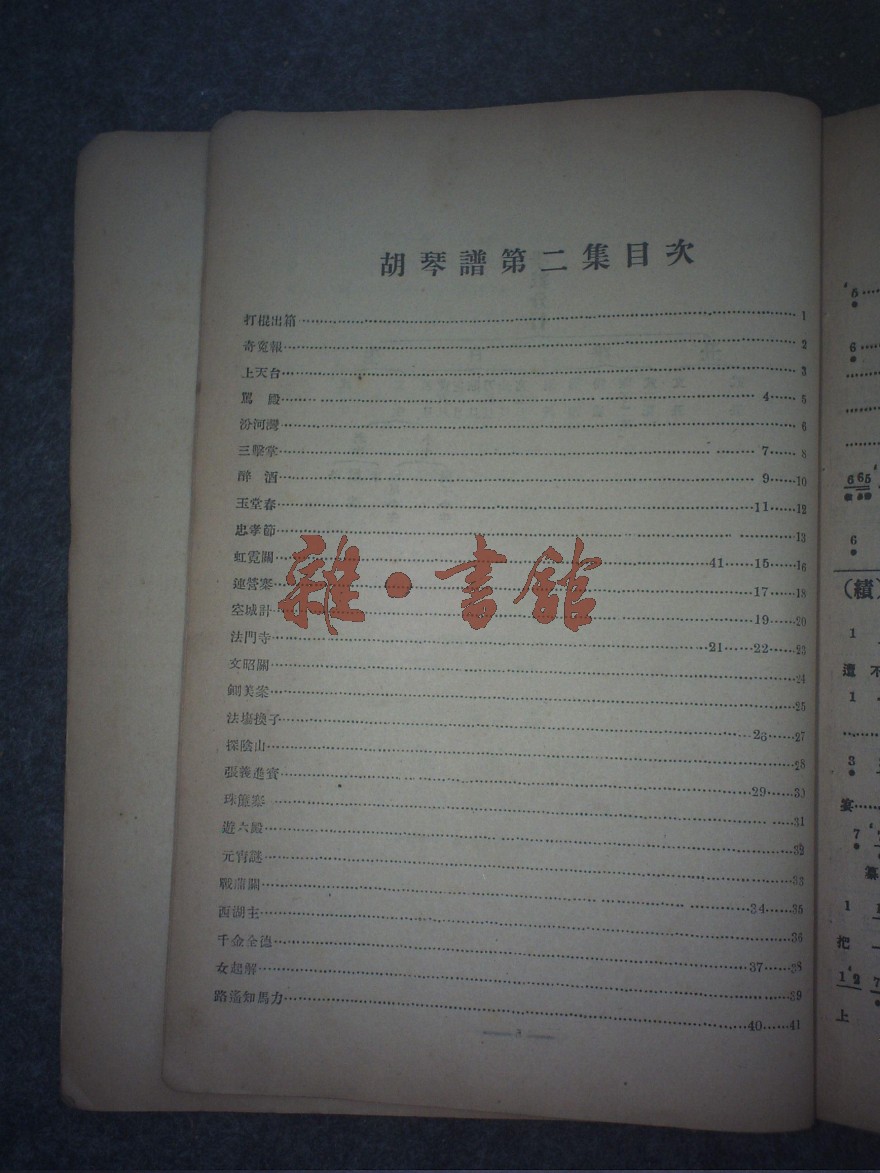 胡琴譜第二集目次
打棍出箱 1
奇寃報 2
上天台 3
罵殿 4 5
汾河灣 6
三擊掌 7 8
醉酒 9 10
玉堂春 11 12
忠孝節 13
虹霓關 41 15 16
連營寨 17 18
空城計 19 20
法門寺 21 22 23
文昭關 24
鍘美案 25
法塲換子 26 27
探陰山 28
張義進寳 29 30
珠簾寨 31
遊六殿 32
元宵謎 33
戰蒲關 34 35
西湖主 36
千金全德 37 38
女起解 39
路遙知馬力 40 41
雜·書館
5
6
665
6
(續)
1
還不
1
3
宴
7
1
把
12 7
上